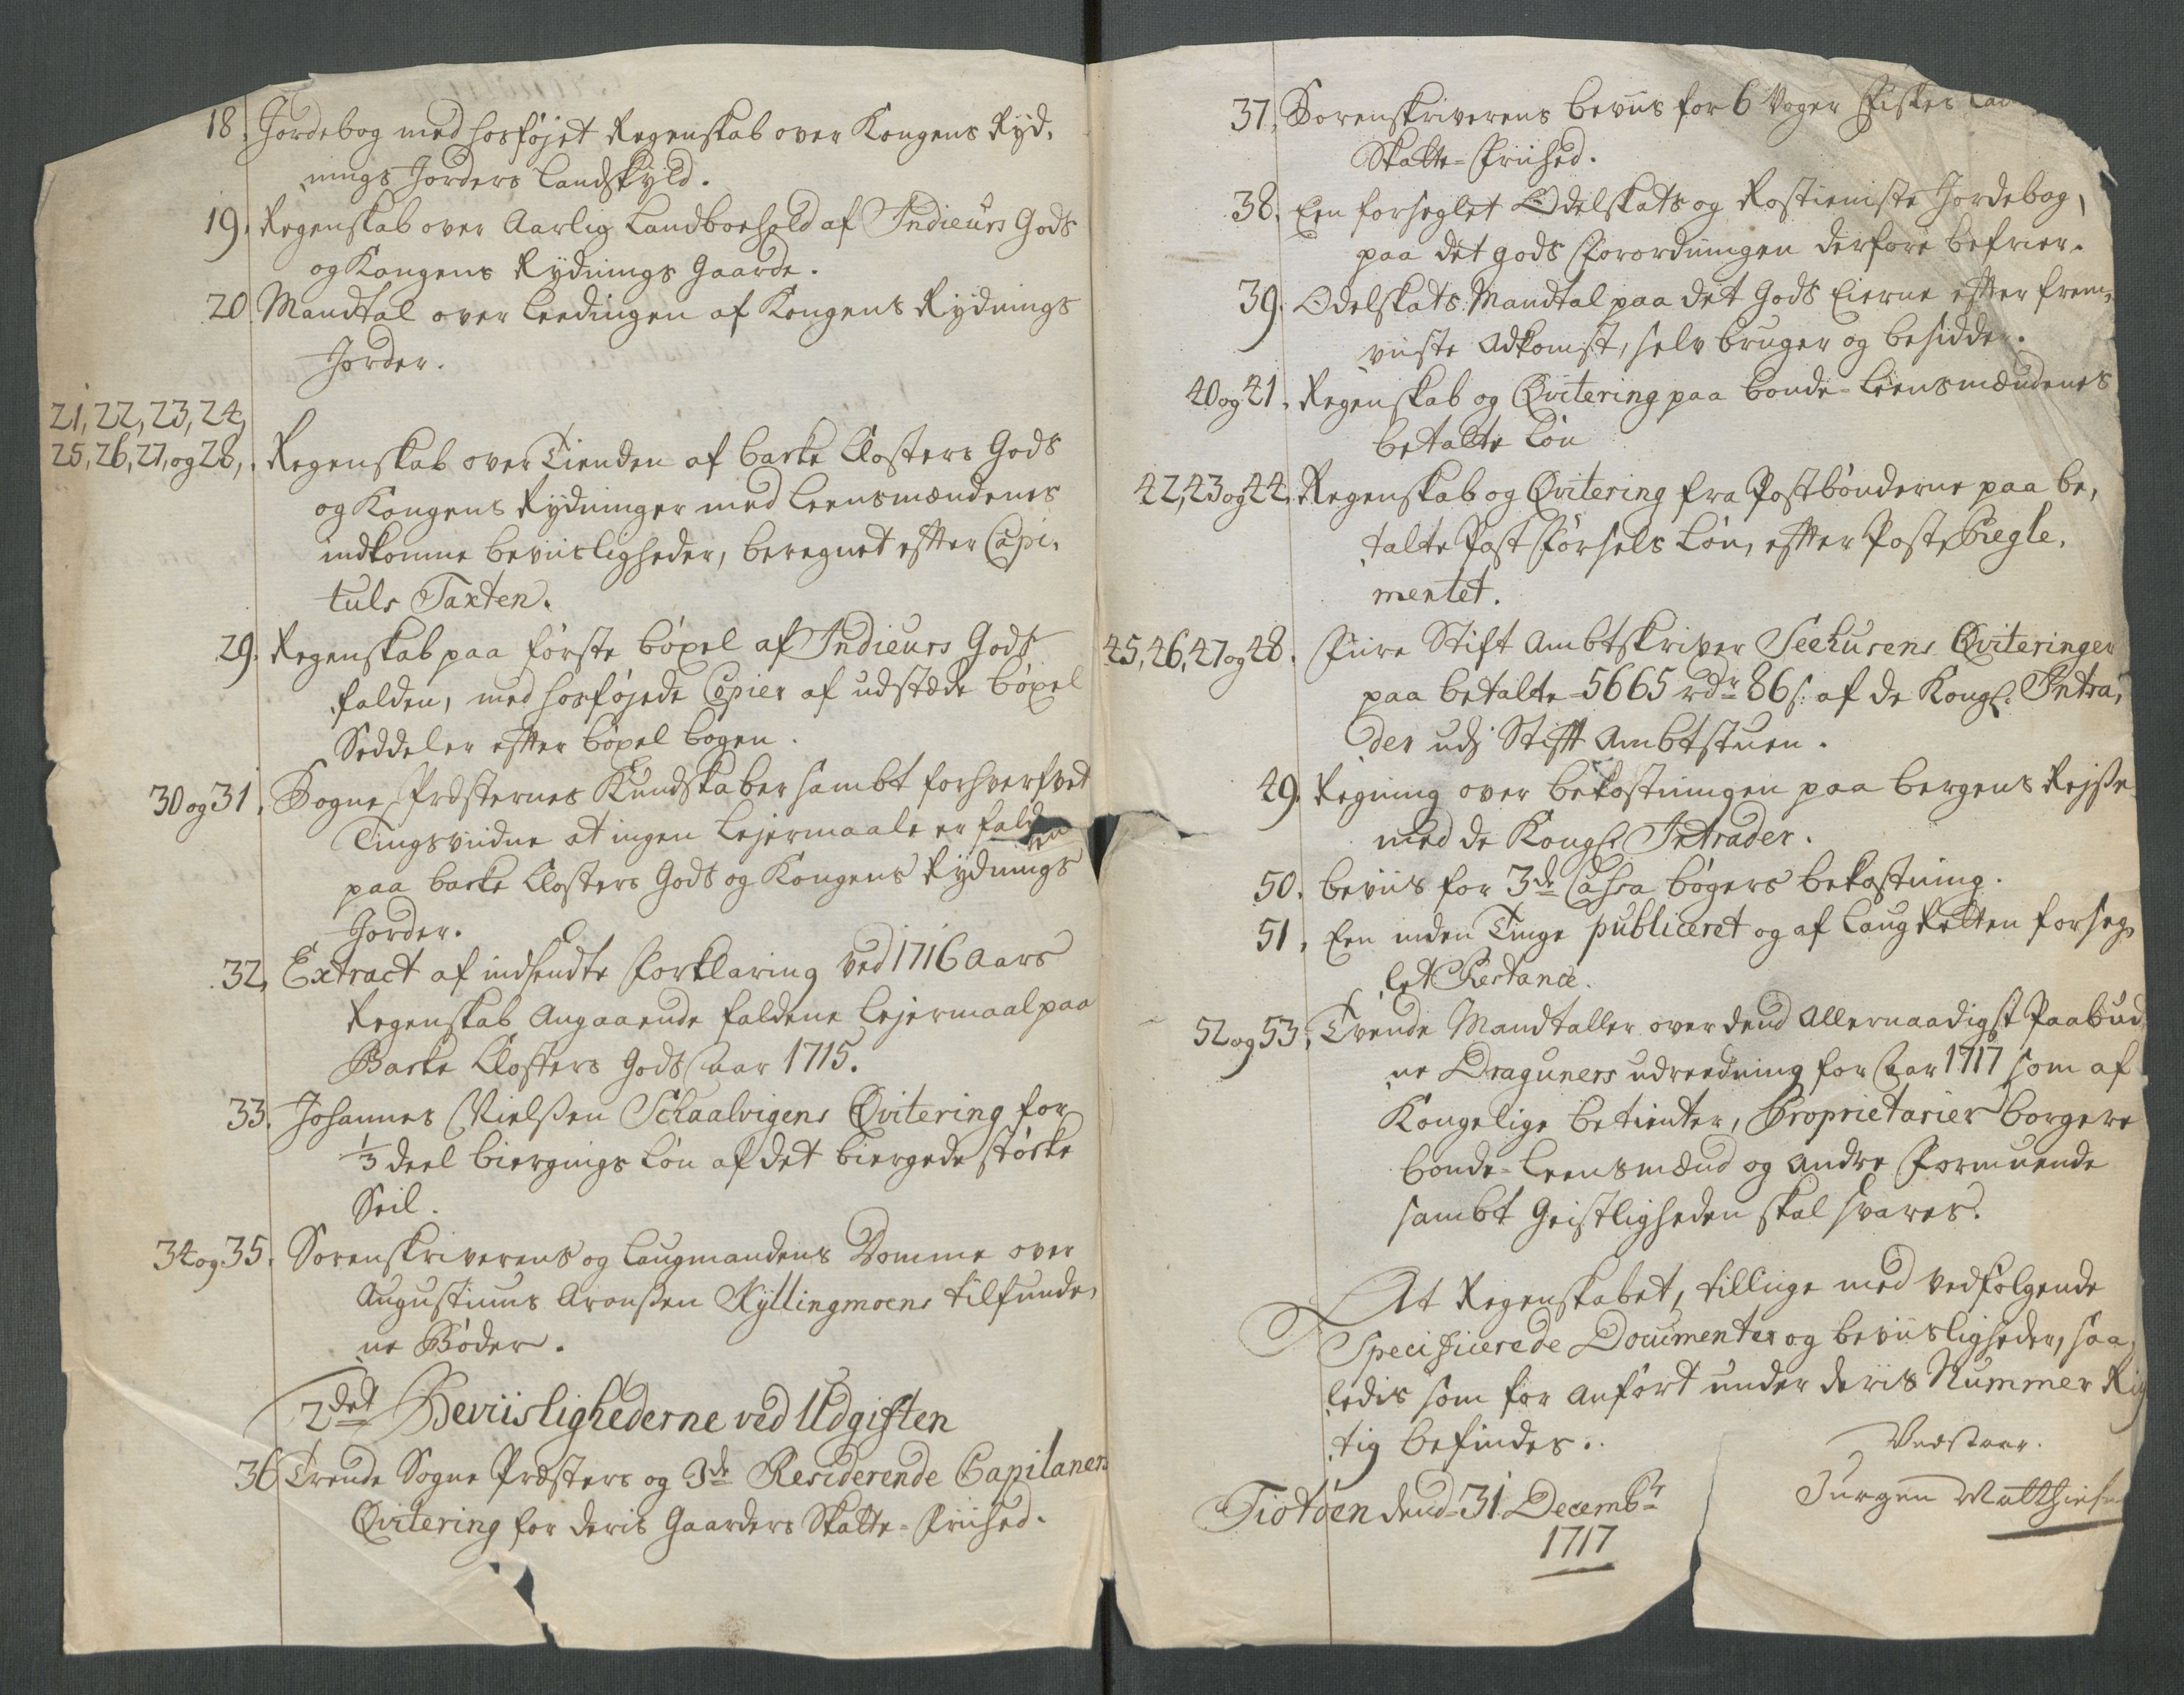 18. Jordebog med hosføjet Regenskab over Kongens Ryd,
nings Jorders Landskyld.
19. Regenskab over Aarlig Landboehold af Indieurs Gods
og Kongens Rydnings Gaarde.
20. Mandtal over Leedingen af Kongens Rydnings
Jorder.
21, 22, 23, 24,
25, 26, 27, og 28, Regenskab over Tienden af Barke Closters Gods
og Kongens Rydninger med Leensmændenes
indkomne beviisligheder, beregnet effter Capi,
tuls Taxten.
29. Regenskab paa første bøxel af Indieurs Gods
falden, med hosføjede Copier af udstæde bøxel
Seddeler effter bøxel bogen.
30 og 31, Sogne Præsternes Kundskaber sambt forhverfvet
Tingsvidne at ingen Lejermaale er falden
paa Barke Closters Gods og Kongens Rydnings
Jorder.
32, Extract af indsendte Forklaring ved 1716 Aars
Regenskab Angaaende faldene Lejermaal paa
Barke Closters Gods Aar 1715.
33. Johannes Nielsen Schaalvigens Qvitering for
1/3 deel biergings Løn af det biergede støcke
Seil.
34 og 35. Sorenskriverens og Laugmandens Domme over
Augustinus Aronsen Kyllingmoens tilfunde,
ne Bøder.
2det Beviislighederne ved Udgiften
36 Trende Sogne Præsters og 3de Residerende Capilaners
Qvitering for deris Gaarders Skatte-Friihed.
37, Sorenskriverens beviis for 6 Voger Fiskes
Skatte-Friihed.
38. Een forseglet Odelskats og Rostieniste Jordebog,
paa det gods Forordningen derfore befrier.
39. Odelskats Mandtal paa det Gods Eierne effter frem,
viiste Adkomst, selv bruger og besidder.
40 og 41, Regenskab og Qvitering paa bonde-Leensmændenes
betalte Løn
42, 43 og 44, Regenskab og Qvitering fra Postbønderne paa be,
talte Post Førsels Løn, effter Post Regle,
mentet.
45, 46, 47 og 48. Fiire Stift Ambtskriver Seehusens Qviteringer
paa betalte 5665 rdr 86 s: af de Kongl. Intra,
der udj Stifft Ambtstuen.
49. Regning over bekostningen paa bergens Rejse
med de Kongl Intrader.
50. beviis for 3de Cassa bøgers bekostning.
51, Een inden Tinge publiceret og af Laug Retten forseg,
let Restance.
52 og 53, Tvende Mandtaller over dend Allernaadigst Paabud,
ne Draguners udreedning for Aar 1717 som af
Kongelige betienter, Proprietarier borgere
bonde-Leensmænd og Andre Formuende
sambt Geistligheden skal svares.
At Regenskabet, tillige med vedfølgende
Specificerede Documenter og beviisligheder, saa,
ledis som for Anført under deris Nummer Rig
tig befindes.
Vedstaar.
Tiotøen dend 31 Decembr
Jurgen Matthiesen
1717